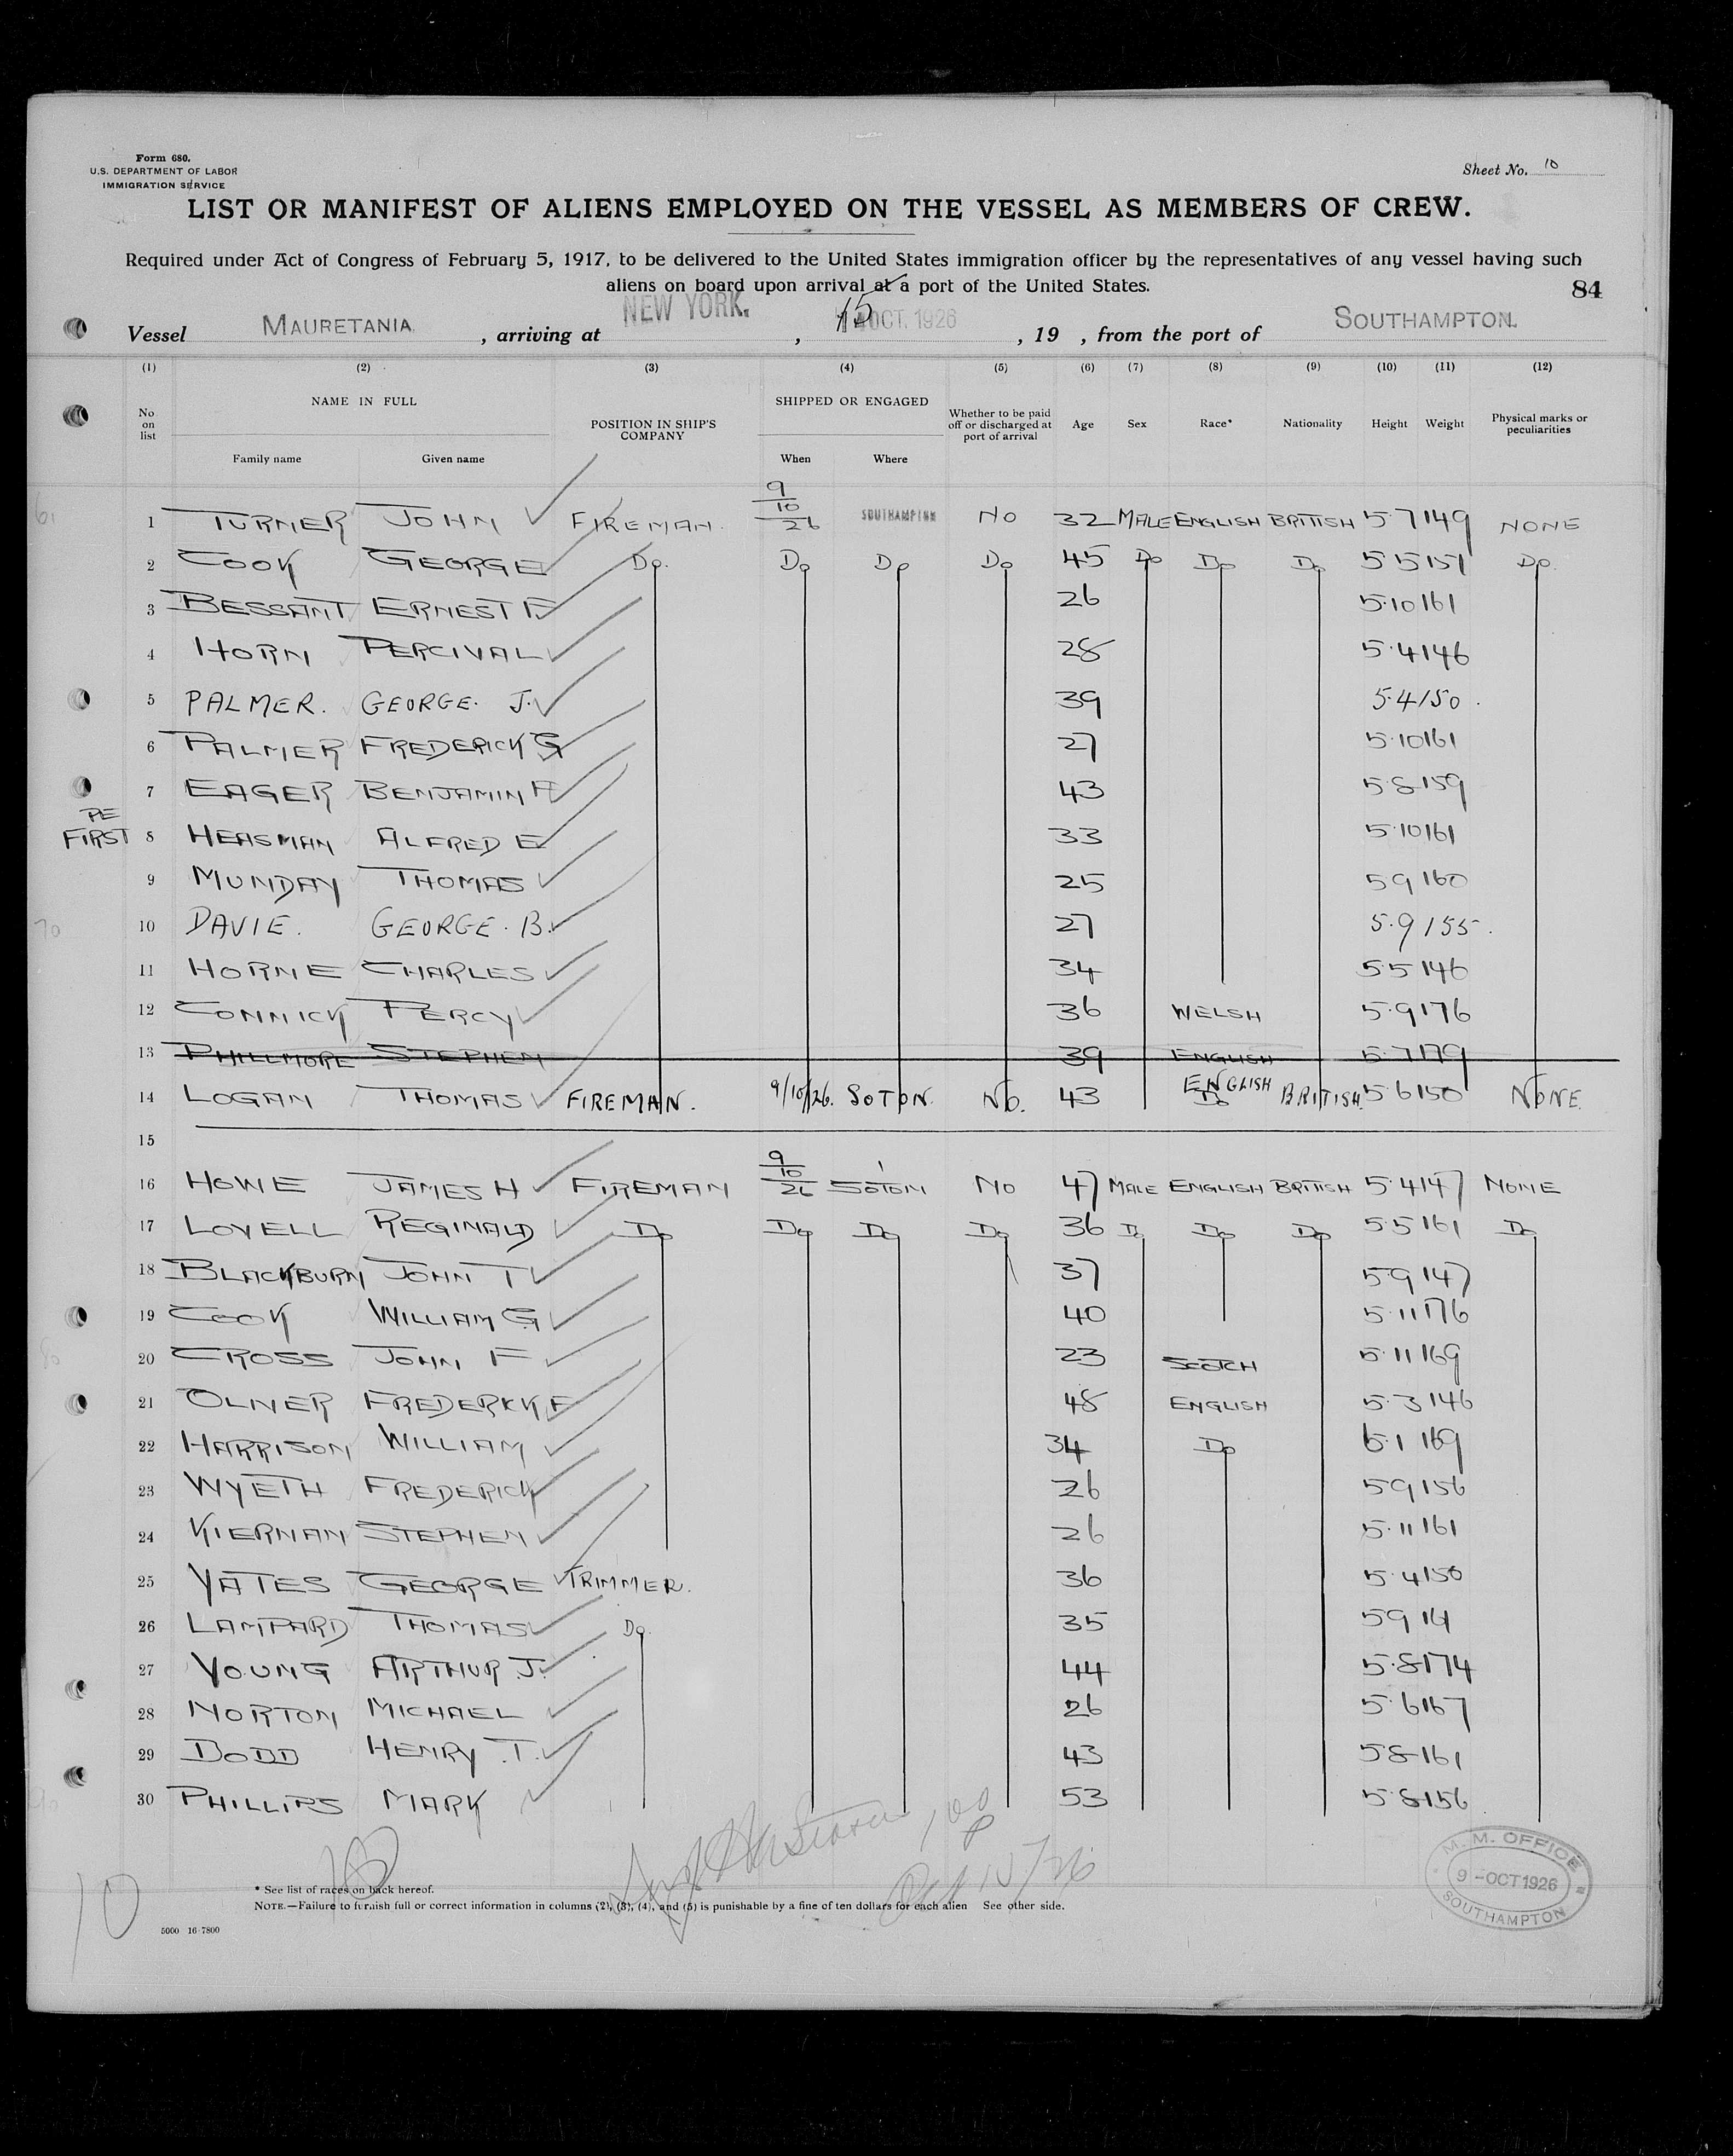 Form 680.
U.S. DEPARTMENT OF LABOR
IMMIGRATION SERVICE
Sheet No. 10
LIST OR MANIFEST OF ALIENS EMPLOYED ON THE VESSEL AS MEMBERS OF CREW.
Required under Act of Congress of February 5, 1917, to be delivered to the United States immigration officer by the representatives of any vessel having such
aliens on board upon arrival at a port of the United States.
84
Vessel MAURETANIA , arriving at NEW YORK. , 15 OCT. 1926 , 19 , from the port of SOUTHAMPTON.
(1) (2) (3) (4) (5) (6) (7) (8) (9) (10) (11) (12)
No on list NAME IN FULL Family name Given name POSITION IN SHIP'S COMPANY SHIPPED OR ENGAGED When Where Whether to be paid off or discharged at port of arrival Age Sex Race* Nationality Height Weight Physical marks or peculiarities
1 TURNER JOHN FIREMAN. 9/10/26 SOUTHAMPTON NO 32 MALE ENGLISH BRITISH 5.7 149 NONE
2 COOK GEORGE Do. Do Do Do 45 Do Do Do 5.5 151 Do.
3 BESSANT ERNEST F 26 5.10 161
4 HORN PERCIVAL 28 5.4 146
5 PALMER. GEORGE. J. 39 5.4 150.
6 PALMER FREDERICK G 27 5.10 161
7 EAGER BENJAMIN A 43 5.8 159
PE FIRST 8 HEASMAN ALFRED E 33 5.10 161
9 MUNDAY THOMAS 25 5.9 160
10 DAVIE. GEORGE. B. 27 5.9 155.
11 HORNE CHARLES 34 5.5 146
12 CONNICK PERCY 36 WELSH 5.9 176
13 PHILLMORE STEPHEN 39 ENGLISH 5.7 179
14 LOGAN THOMAS FIREMAN. 9/10/26. SOTON. NO. 43 ENGLISH Do BRITISH. 5.6 150 NONE.
15
16 HOWE JAMES H FIREMAN 9/10/26 SOTON NO 47 MALE ENGLISH BRITISH 5.4 147 NONE
17 LOVELL REGINALD Do Do Do Do 36 Do Do Do 5.5 161 Do
18 BLACKBURN JOHN T 37 5.9 147
19 COOK WILLIAM G 40 5.11 176
20 CROSS JOHN F 23 SCOTCH 5.11 169
21 OLIVER FREDERICK F 48 ENGLISH 5.3 146
22 HARRISON WILLIAM 34 Do 6.1 169
23 WYETH FREDERICK 26 5.9 156
24 KIERNAN STEPHEN 26 5.11 161
25 YATES GEORGE TRIMMER. 36 5.4 150
26 LAMPARD THOMAS Do. 35 5.9 161
27 YOUNG ARTHUR J. 44 5.8 174
28 NORTON MICHAEL 26 5.6 167
29 DODD HENRY T. 43 5.8 161
30 PHILLIPS MARK 53 5.8 156
10
Oct 15/26
M. M. OFFICE
9-OCT 1926
SOUTHAMPTON
* See list of races on back hereof.
NOTE.—Failure to furnish full or correct information in columns (2), (3), (4), and (5) is punishable by a fine of ten dollars for each alien See other side.
5000 16-7800